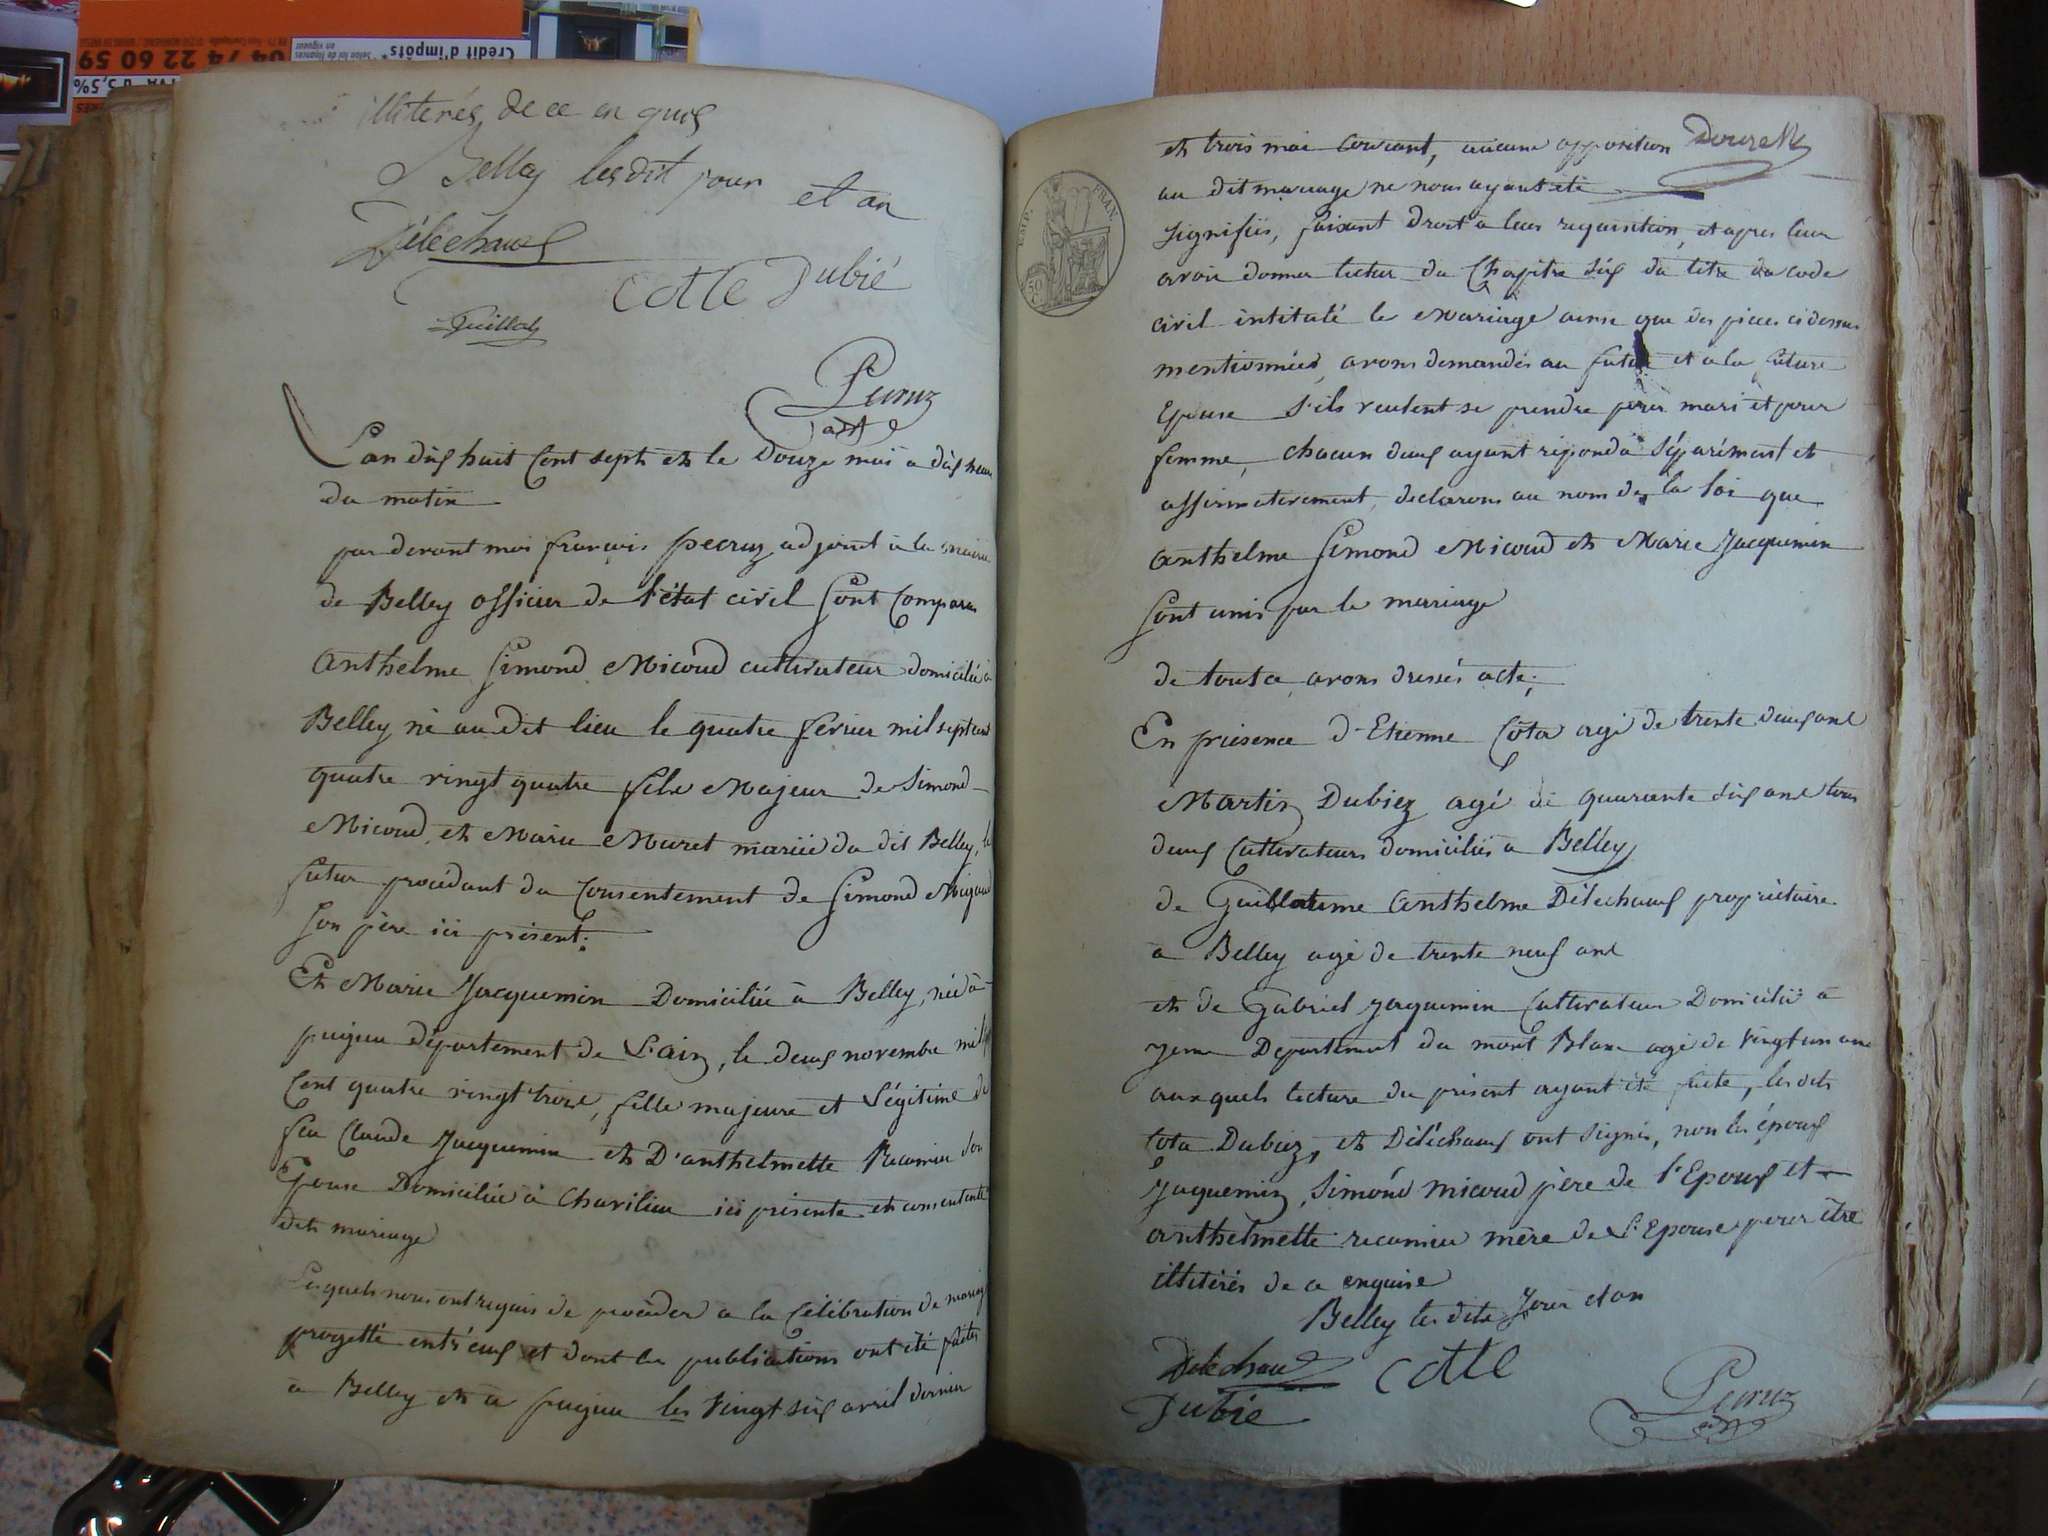 Crédit d'impôts*
Selon loi de finances
en vigueur
04 74 22 60 59
TVA à 5,5%
illiterés de ce enquis
Belley les dit jour et an
Délechaux
Cotte Dubié
Guillot
Peruz
adjt
L'an dix huit Cent sept et le Douze mai a dix heures
du matin
par devant moi françois pecruz adjoint à la mairie
de Belley officier de l'état civil sont Comparus
Anthelme Simond Micoud cultivateur domicilié à
Belley né au dit lieu le quatre fevrier mil sept cent
quatre vingt quatre fils Majeur de Simond
Micoud et Marie Muret mariée du dit Belley, le
futur procédant du Consentement de Simond Migoud
son père ici présent.
Et Marie Jacquemin Domiciliée à Belley, née à
pugieu département de L'ain, le deux novembre mil sept
Cent quatre vingt trois, fille majeure et Légitime de
feu Claude Jacquemin et D'anthelmette Recamier son
Epouse Domiciliée à Chavilieu ici présente et consentante
dit mariage
Lesquels nous ont requis de procéder a la Célébration de mariage
projetté entr'eux et dont les publications ont été faites
à Belley et a pugieu les vingt six avril dernier
et trois mai Courant, aucune opposition
au dit mariage ne nous ayant été
signifiés, faisant Droit a leur requisition, et apres leur
avoir donner lectur du Chapitre six du titre du code
civil intitulé le Mariage ainsi que des pieces ci dessus
mentionnées, avons demandés au futur et a la future
Epouse s'ils veulent se prendre pour mari et pour
femme, chacun deux ayant répondu séparément et
affirmativement, declarons au nom de la loi que
Anthelme Simond Micoud et Marie Jacquemin
sont unis par le mariage
de tout ce avons dressés acte;
En présence d'Etienne Cota agé de trente deux ans
Martin Dubiez agé de quarante six ans tous
deux Cultivateurs domiciliés a Belley
de Guillaume Anthelme Délechaux propriétaire
a Belley agé de trente neuf ans
et de Gabriel Jaquemin Cultivateur Domicilié a
yenne Département du mont Blanc agé de vingt un ans
auxquels lecture du présent ayant été faite, les dits
Cota Dubiez, et Déléchaux ont signés, non les époux
Jaquemin, Simond micoud père de l'Epoux et
anthelmette recamier mère de L'Epouse pour être
illitérés de ce enquise
Belley les dits Jour et an
Delechaux Cotte
Dubié
Peruz
adjt
EMP. FRAN.
50